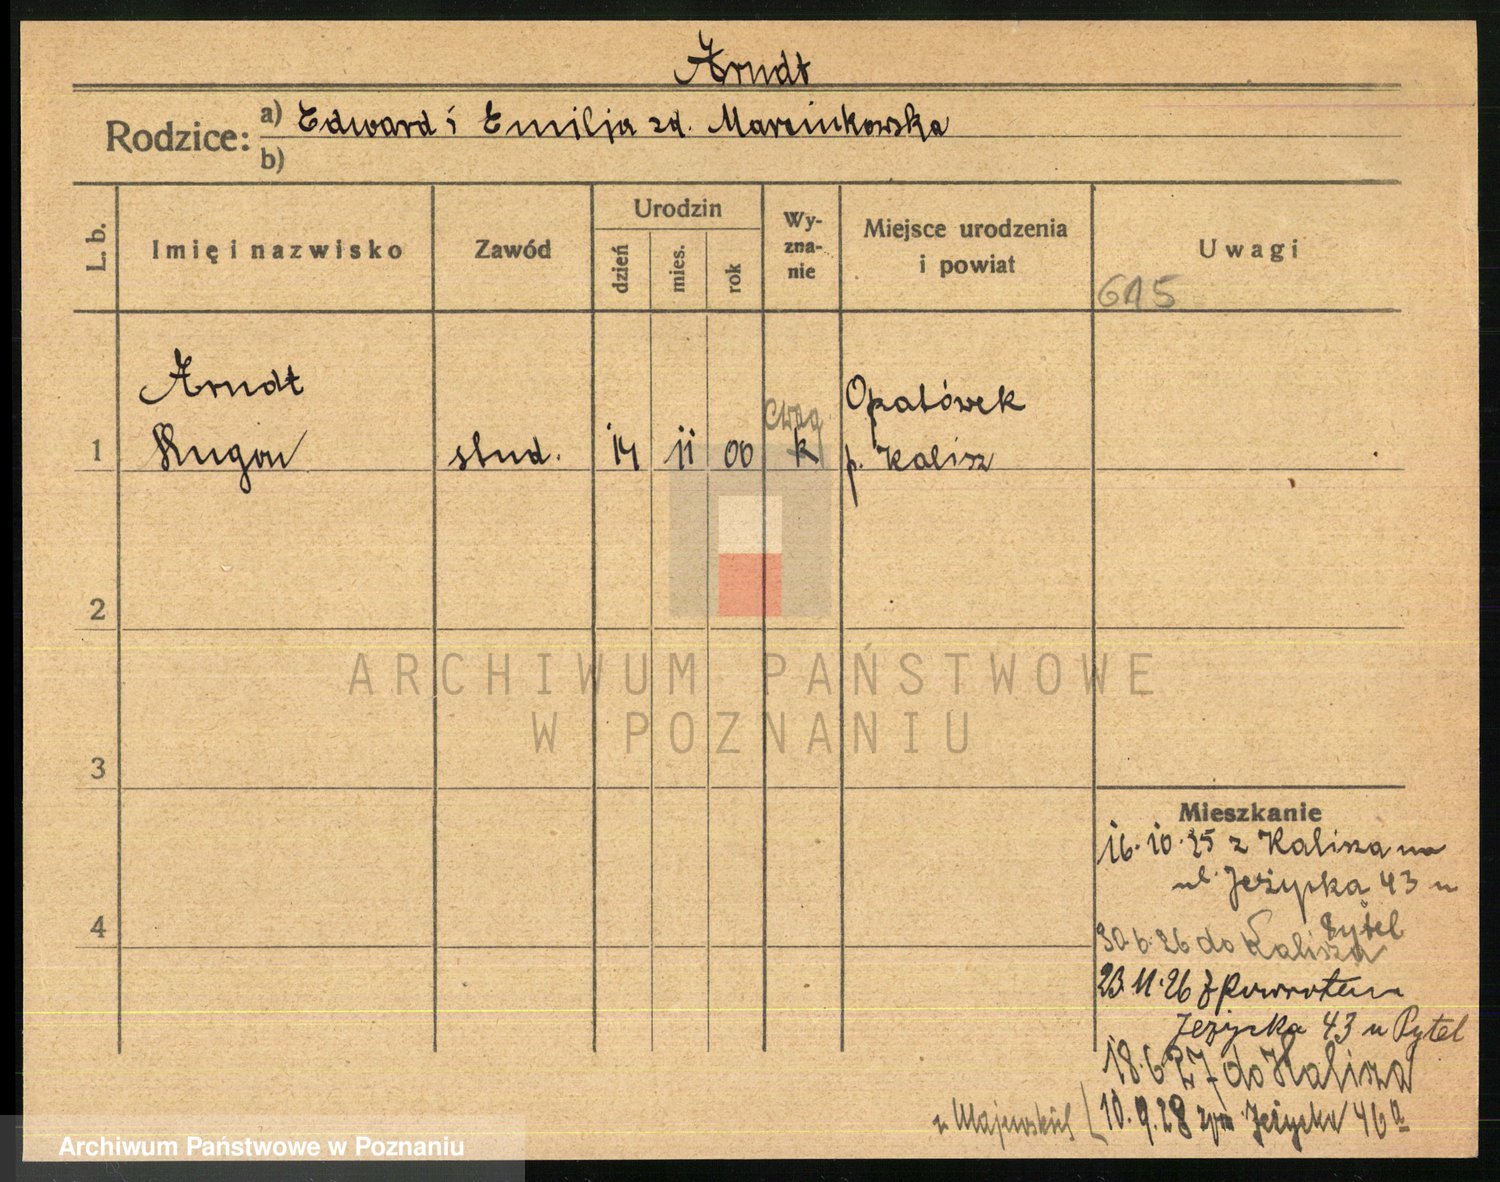 Arndt
Rodzice:
a) Edward i Emilja zd. Marcinkowska
b)
L. b.
Imię i nazwisko
Zawód
Urodzin
dzień
mies.
rok
Wy-
zna-
nie
Miejsce urodzenia
i powiat
Uwagi
615
Arndt
1
stud.
14
11
00
Ewag
k
Opatówek
p. Kalisz
2
3
4
Mieszkanie
16.10.25 z Kalisza na
ul. Jeżycka 43 u
Pytel
30.6.26 do Kalisza
23.11.26 z powrotem
Jeżycka 43 u Pytel
18.6.27 do Kalisza
u Majewskich
10.9.28 Jeżycka 46a
ARCHIWUM PAŃSTWOWE
W POZNANIU
Archiwum Państwowe w Poznaniu